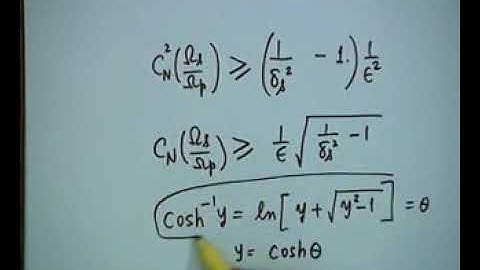 C_N^2(Ω_s/Ω_p) ≥ (1/δ_s^2 - 1.) 1/ϵ^2
C_N(Ω_s/Ω_p) ≥ 1/ϵ √(1/δ_s^2 - 1)
cosh^-1 y = ln[y + √(y^2-1)] = θ
y = coshθ